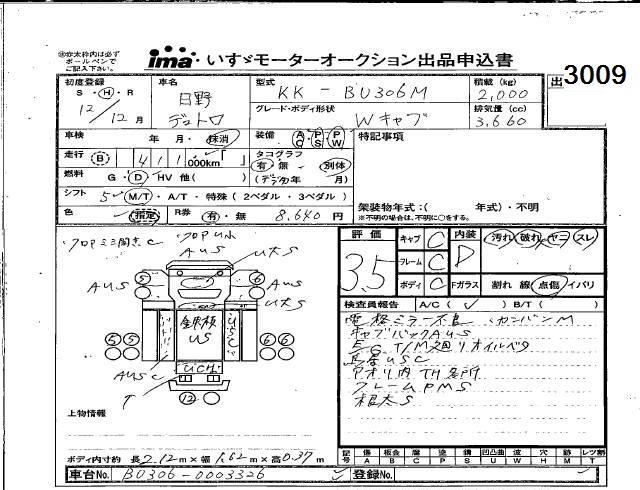 ※非太枠内は必ず
ボールペンで
ご記入下さい。
ima・いすゞモーターオークション出品申込書
出 3009
初度登録 S・H・R 12/12月
車名 日野 デュトロ
型式 KK-BU306M
積載(kg) 2,000
グレード・ボディ形状 Wキャブ
排気量(cc) 3,660
車検 年・月・抹消
装備 AC PS PW
特記事項
走行 B 411,000km
タコグラフ 有・無 別体
燃料 G・D・HV 他( )
(デジタコ年 月)
シフト 5 M/T・A/T・特殊(2ペダル・3ペダル)
架装物年式:( 年式)・不明
※不明の場合は、不明に○をする。
色 指定 R券 有・無 8,640円
評価 3.5
キャブ C
フレーム C
ボディ C
内装 D 汚れ 破れ ヤコ スレ
Fガラス 割れ 線 点傷 イバリ
検査員報告 A/C( ✓ ) B/T( )
電格ミラー不良 カンバンM
キャブバックAUS
Eg T/M廻リオイルベタ
アオリ内
フレームPMS
根太S
AUS
UえS
AUS
AUS
UえS
5 6
5 5 6 6
鉄板
US
AUSC
UCH
T
12
上物情報
ボディ内寸約 長2.12m×幅1.62m×高0.37m
記号 傷A 板金B 腐C 塗P 錆S 凹凸曲U 波W 穴H 跡M レツ割T
車台No. BU306-0003326
登録No.